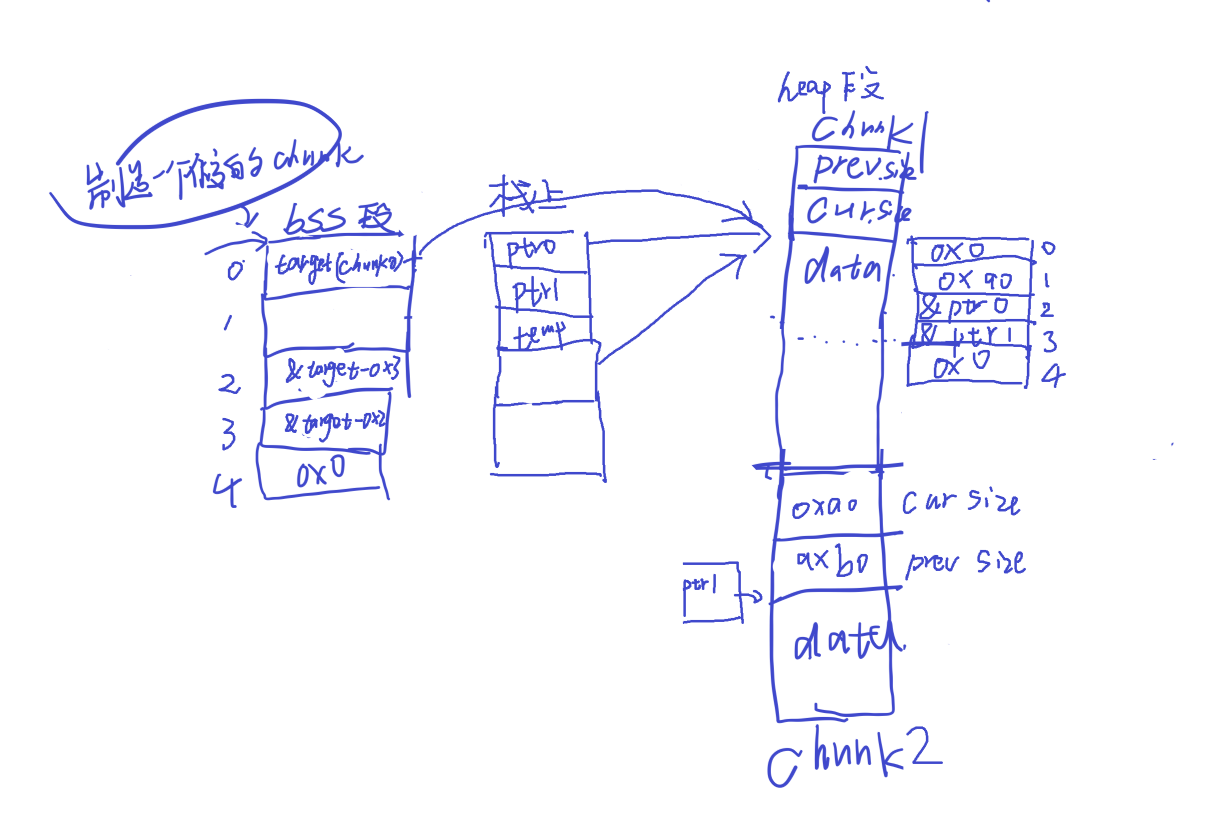 制造一个假的chunk
bss 段
0
target(chunk0)
1
2
&target-0x3
3
&target-0x2
4
0x0
栈上
ptr0
ptr1
temp
heap段
Chunk1
prev.size
Cur.size
data
0x0 0
0x90 1
&ptr0 2
&ptr1 3
0x0 4
0xa0 Cur size
0xb0 prev size
ptr1
data
Chunk2